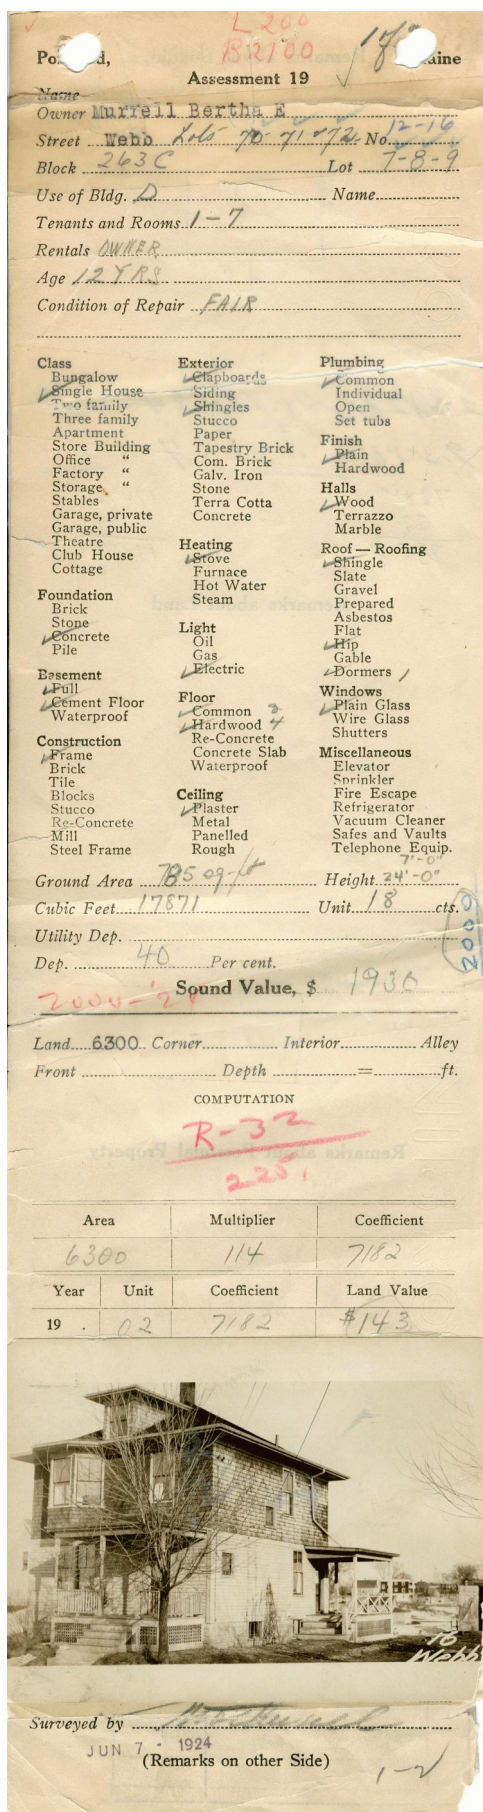 L 200
B 2100
Assessment 19
Name
Owner Murrell Bertha E
Street Webb Lots 70-71 & 72 No. 12-16
Block 263 C Lot 7-8-9
Use of Bldg. D Name
Tenants and Rooms 1-7
Rentals OWNER
Age 12 YRS
Condition of Repair FAIR
Class
Bungalow
Single House
Two family
Three family
Apartment
Store Building
Office "
Factory "
Storage "
Stables
Garage, private
Garage, public
Theatre
Club House
Cottage
Foundation
Brick
Stone
Concrete
Pile
Basement
Full
Cement Floor
Waterproof
Construction
Frame
Brick
Tile
Blocks
Stucco
Re-Concrete
Mill
Steel Frame
Exterior
Clapboards
Siding
Shingles
Stucco
Paper
Tapestry Brick
Com. Brick
Galv. Iron
Stone
Terra Cotta
Concrete
Heating
Stove
Furnace
Hot Water
Steam
Light
Oil
Gas
Electric
Floor
Common 3
Hardwood 4
Re-Concrete
Concrete Slab
Waterproof
Ceiling
Plaster
Metal
Panelled
Rough
Plumbing
Common
Individual
Open
Set tubs
Finish
Plain
Hardwood
Halls
Wood
Terrazzo
Marble
Roof — Roofing
Shingle
Slate
Gravel
Prepared
Asbestos
Flat
Hip
Gable
Dormers 1
Windows
Plain Glass
Wire Glass
Shutters
Miscellaneous
Elevator
Sprinkler
Fire Escape
Refrigerator
Vacuum Cleaner
Safes and Vaults
Telephone Equip.
7'-0"
Ground Area 785 sq-ft Height 24'-0"
Cubic Feet 17871 Unit 18 cts.
Utility Dep.
2000
Dep. 40 Per cent.
Sound Value, $ 1930
2000-'28
Land 6300 Corner Interior Alley
Front Depth = ft.
COMPUTATION
R-32
225
Area Multiplier Coefficient
6300 114 7182
Year Unit Coefficient Land Value
19 . 02 7182 $143
16
Webb
Surveyed by
JUN 7 - 1924
(Remarks on other Side)
1-2